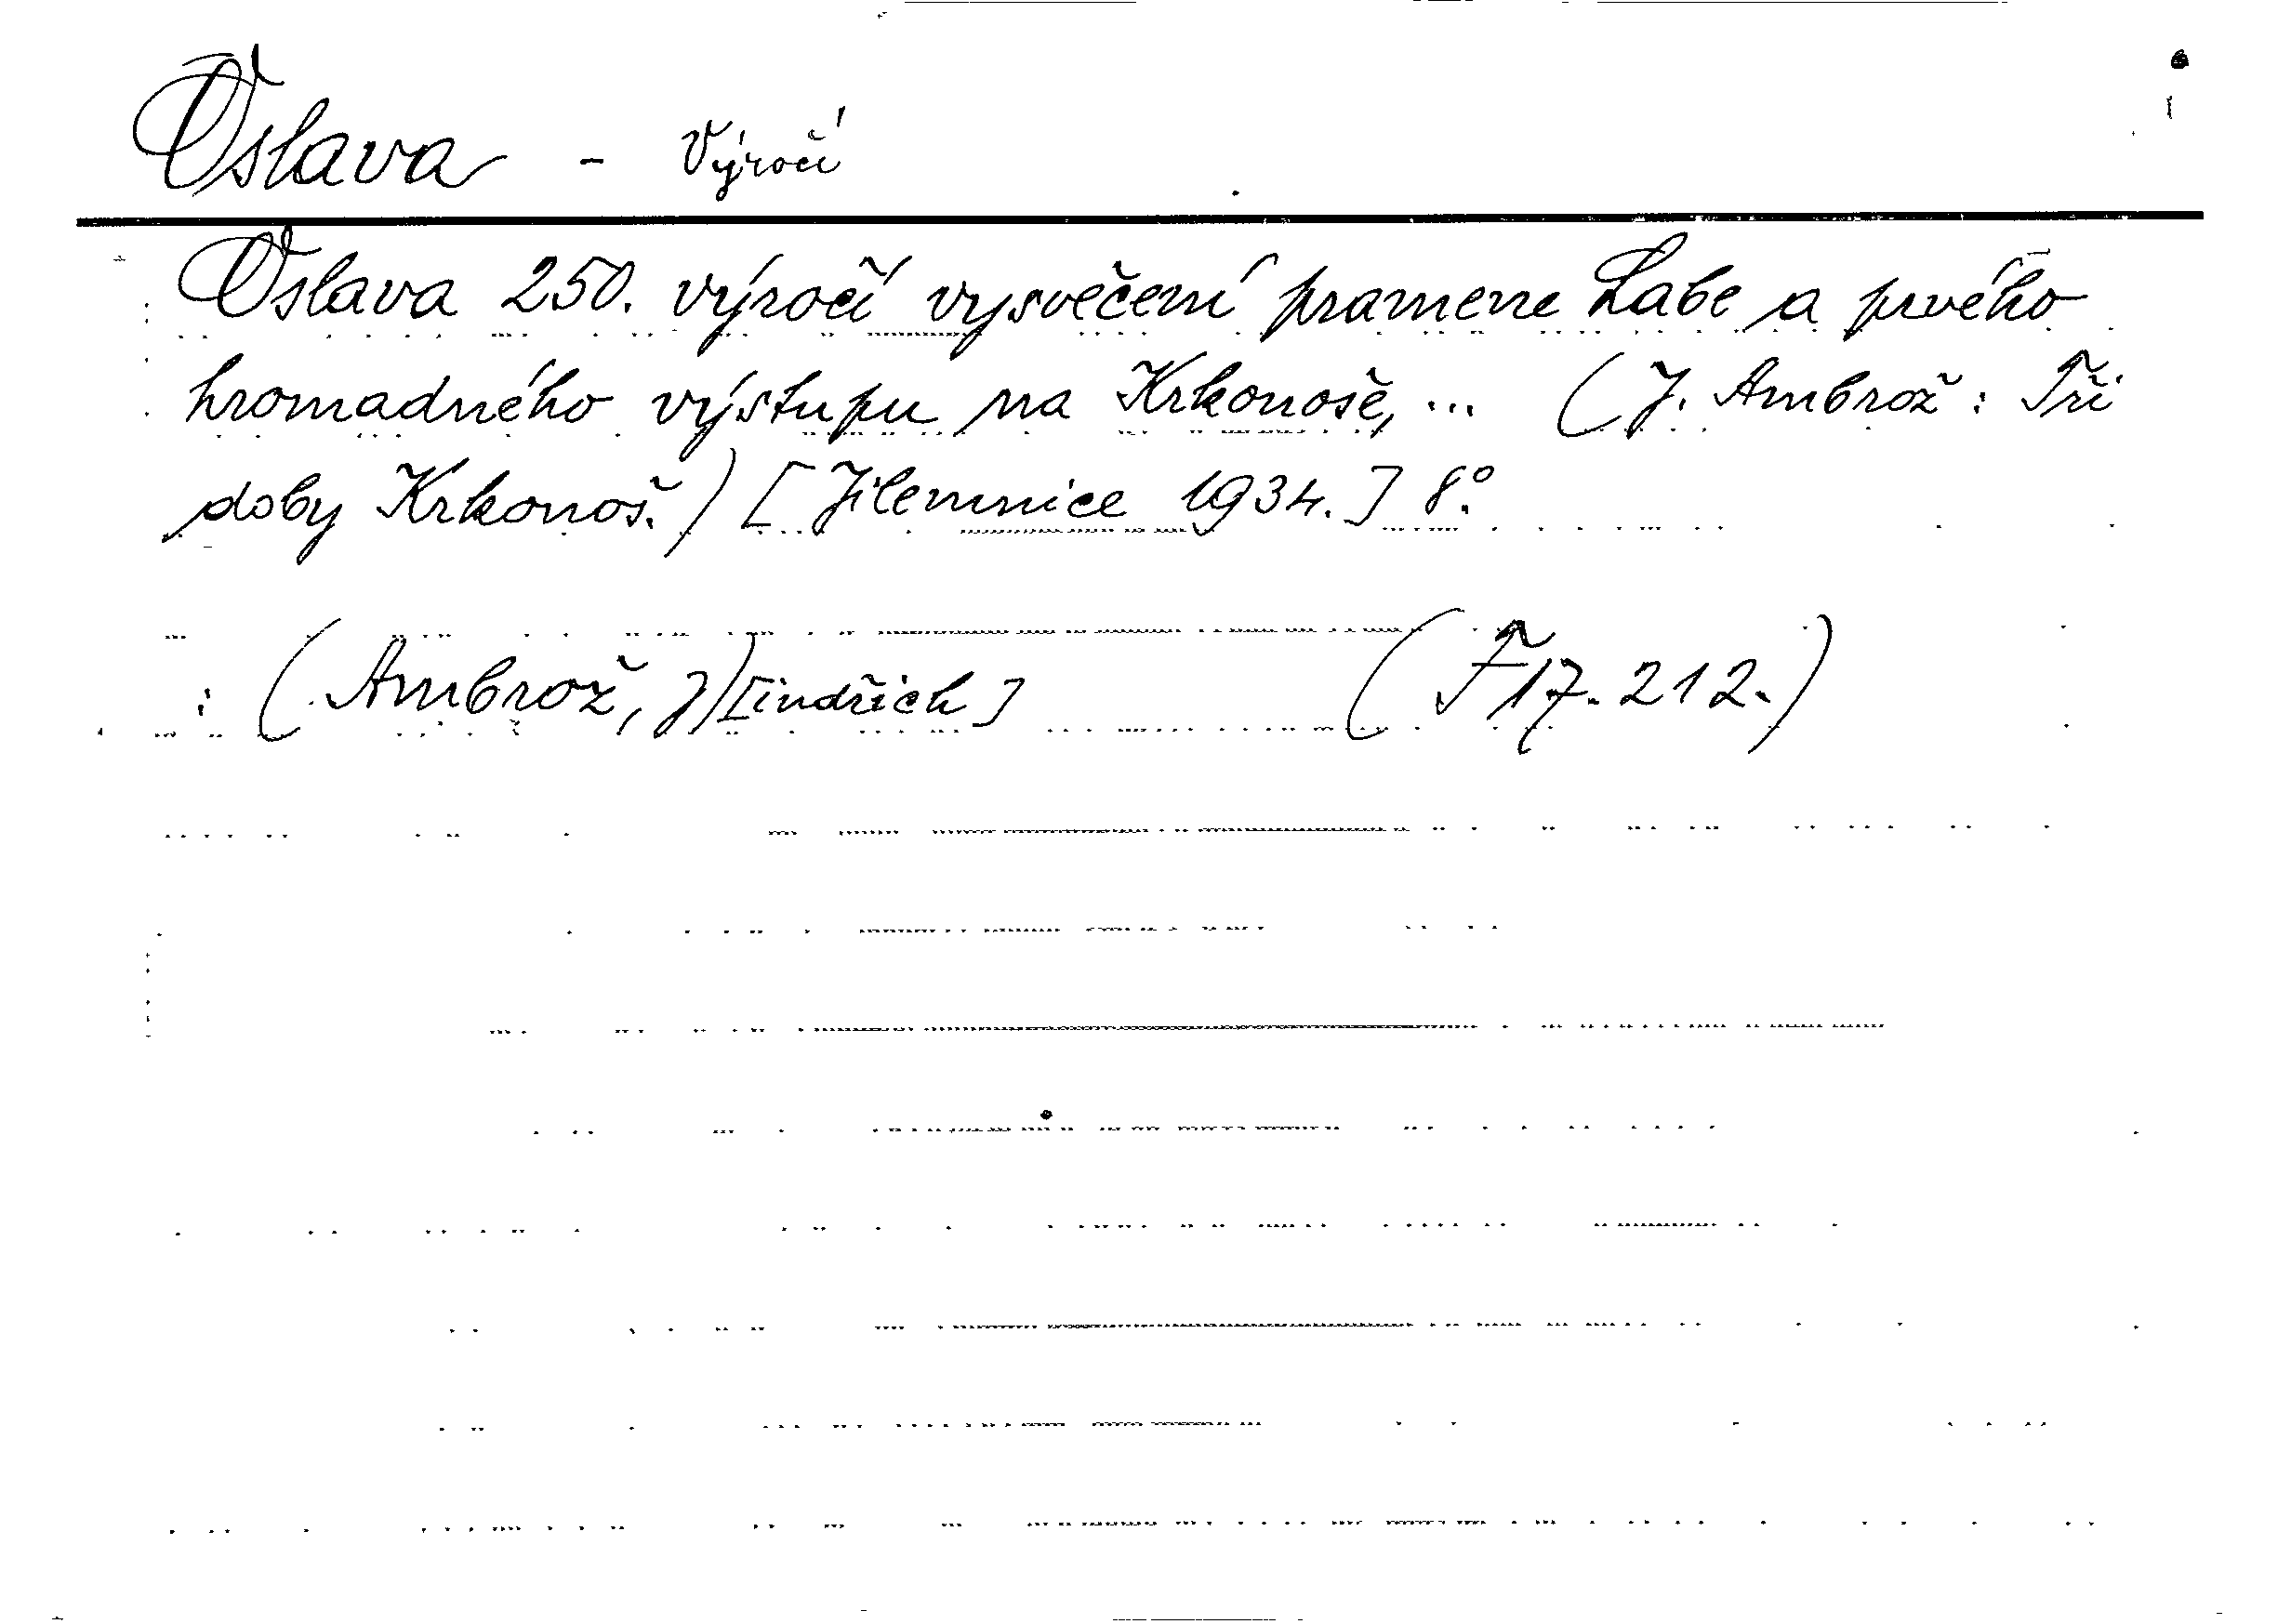 Oslava - Výročí
Oslava 250. výročí vysvěčení pramene Labe a prvého
hromadného výstupu na Krkonoše, ... (J. Ambrož: Tři
doby Krkonoš.) [Jilemnice 1934.] 8°.
: (Ambrož, J)[indřich] (F 17.212.)